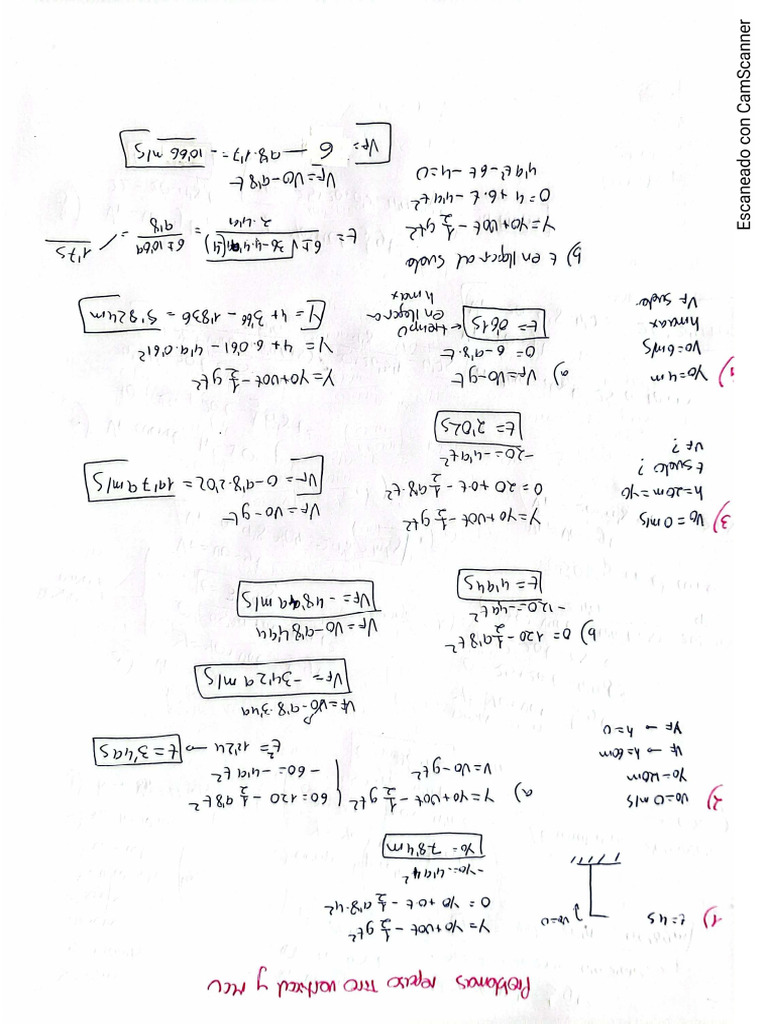 Problemas repaso tiro vertical y MCU
1) t=4s v0=0
y=y0+v0t-1/2gt²
0=y0+0t-1/2 9'8·4²
-y0=-4'9 4²
y0=78'4m
2) v0=0m/s
y0=120m
vF→h=60m
vF→h=0
a) y=y0+v0t-1/2gt²
v=v0-gt²
60=120-1/2 9'8t²
-60=-4'9t²
t²=12'24→t=3'49s
vF=v0-9'8·3'49
vF=-34'29m/s
b) 0=120-1/2 9'8t²
-120=-4'9t²
t=4'94s
vF=v0-9'8 4'94
vF=-48'49m/s
3) v0=0m/s
h=20m=y0
t suelo?
vF?
y=y0+v0t-1/2gt²
0=20+0t-1/2 9'8·t²
-20=-4'9t²
t=2'02s
vF=v0-gt
vF=0-9'8·2'02=19'79m/s
y0=4m
v0=6m/s
hmax
vF suelo
a) vF=v0-gt
0=6-9'8·t
t=0'61s→tiempo en llegar a hmax
y=y0+v0t-1/2gt²
y=4+6·0'61-4'9·0'61²
y=4+3'66-1'836=5'824m
b) t en llegar al suelo
y=y0+v0t-1/2gt²
0=4+6·t-4'9t²
4'9t²-6t-4=0
t=6±√36-4·4'9(-4)/2·4'9=6±10'69/9'8=1'7s
vF=v0-9'8t
vF=6-9'8·1'7=-10'66m/s
Escaneado con CamScanner